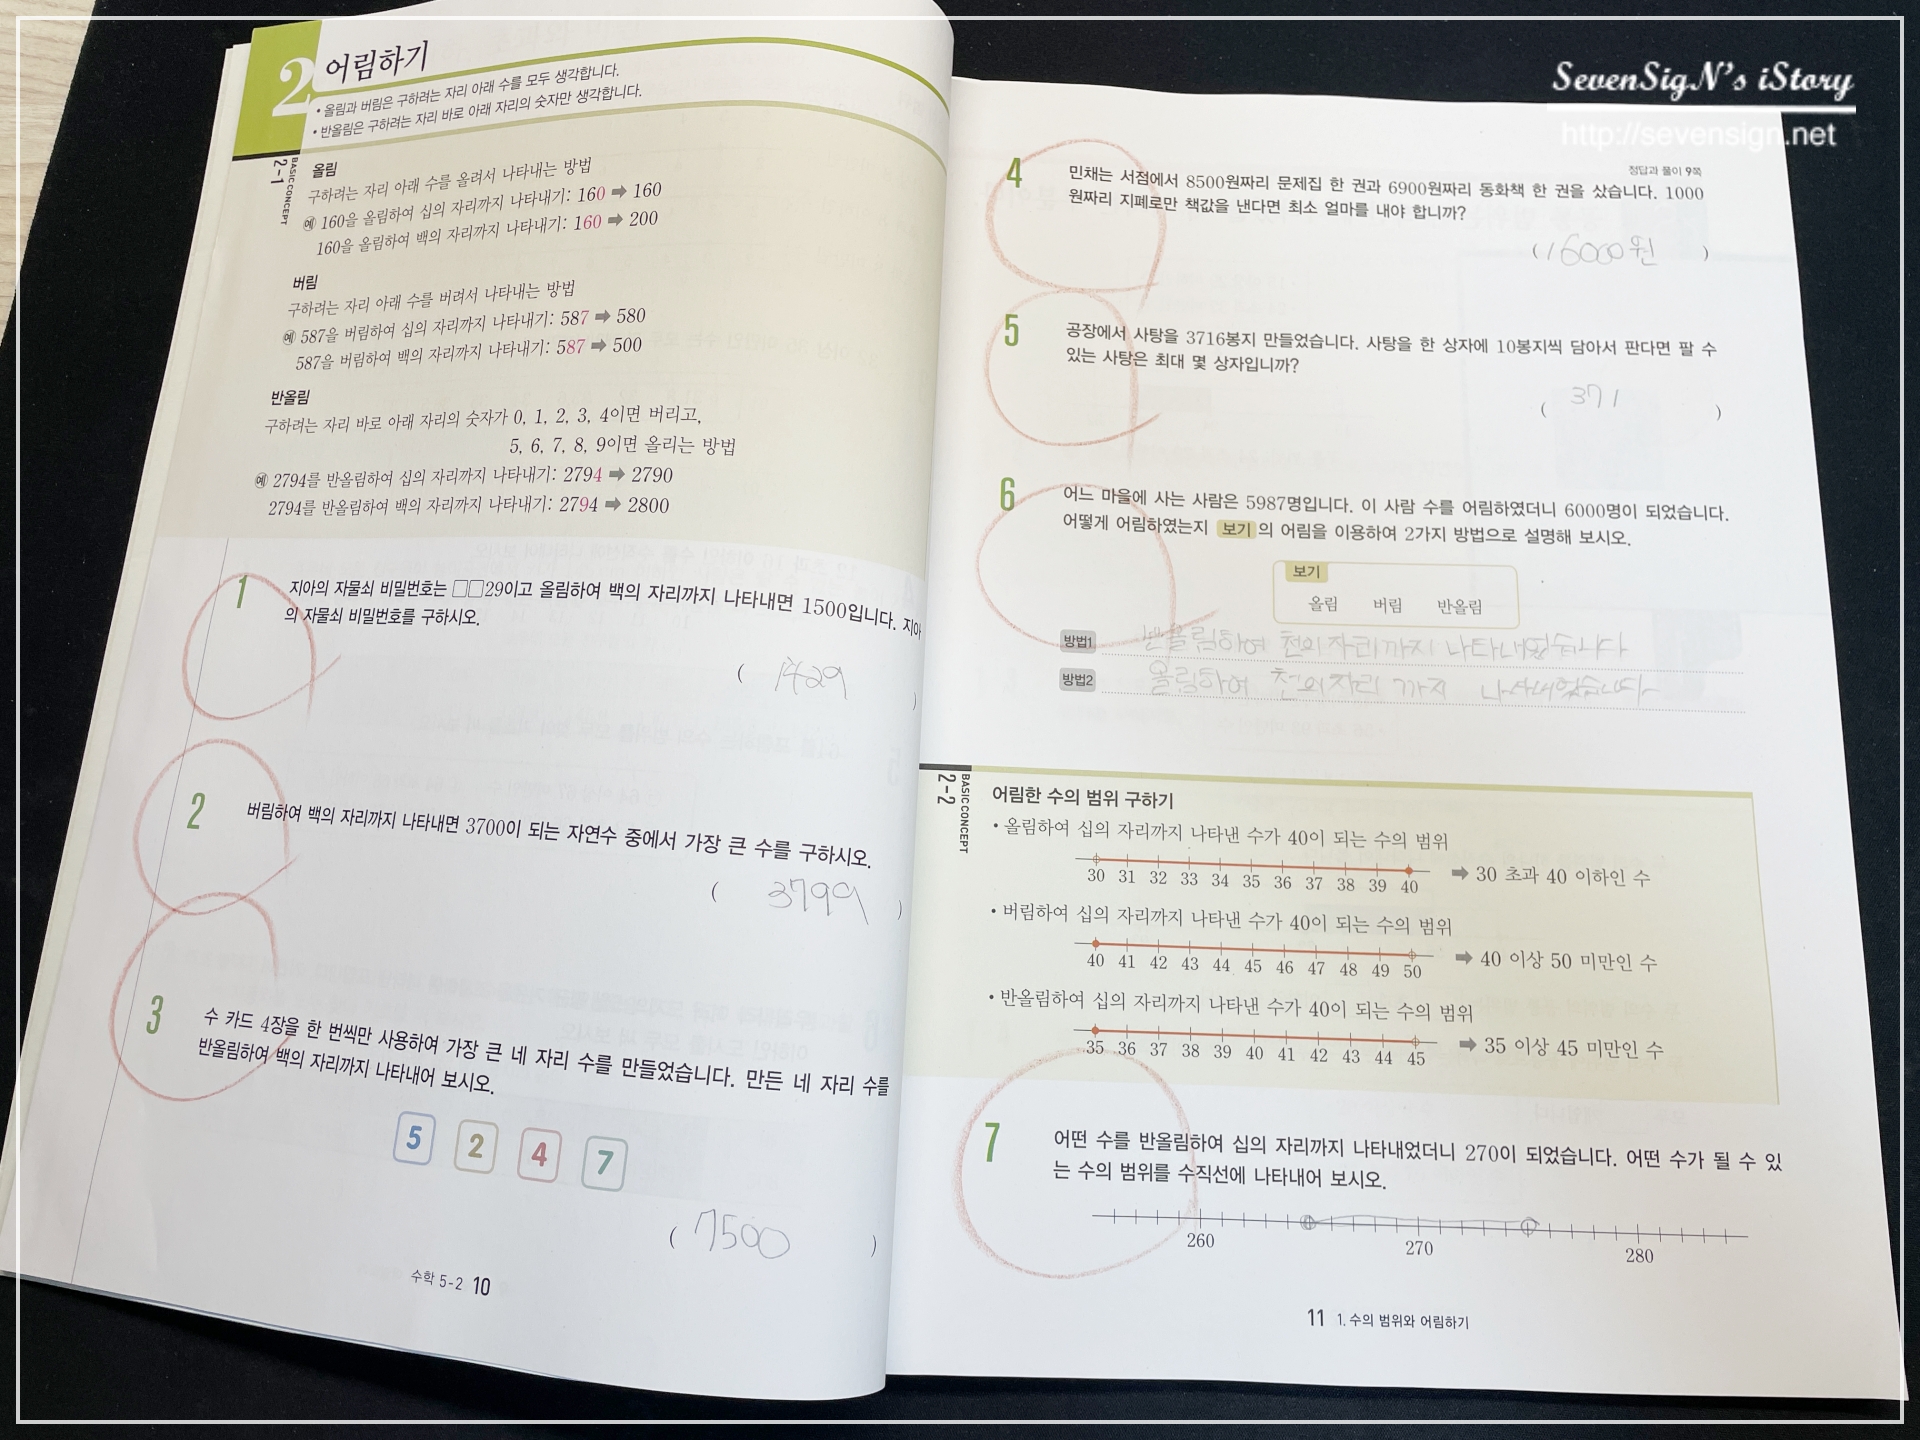 SevenSigN's iStory
http://sevensign.net
2 어림하기
• 올림과 버림은 구하려는 자리 아래 수를 모두 생각합니다.
• 반올림은 구하려는 자리 바로 아래 자리의 숫자만 생각합니다.
BASIC CONCEPT
2-1
올림
구하려는 자리 아래 수를 올려서 나타내는 방법
예 160을 올림하여 십의 자리까지 나타내기: 160 ➡ 160
160을 올림하여 백의 자리까지 나타내기: 160 ➡ 200
버림
구하려는 자리 아래 수를 버려서 나타내는 방법
예 587을 버림하여 십의 자리까지 나타내기: 587 ➡ 580
587을 버림하여 백의 자리까지 나타내기: 587 ➡ 500
반올림
구하려는 자리 바로 아래 자리의 숫자가 0, 1, 2, 3, 4이면 버리고,
5, 6, 7, 8, 9이면 올리는 방법
예 2794를 반올림하여 십의 자리까지 나타내기: 2794 ➡ 2790
2794를 반올림하여 백의 자리까지 나타내기: 2794 ➡ 2800
1 지아의 자물쇠 비밀번호는 □□29이고 올림하여 백의 자리까지 나타내면 1500입니다. 지아
의 자물쇠 비밀번호를 구하시오.
( 1429 )
2 버림하여 백의 자리까지 나타내면 3700이 되는 자연수 중에서 가장 큰 수를 구하시오.
( 3799 )
3 수 카드 4장을 한 번씩만 사용하여 가장 큰 네 자리 수를 만들었습니다. 만든 네 자리 수를
반올림하여 백의 자리까지 나타내어 보시오.
5 2 4 7
( 7500 )
수학 5-2 10
정답과 풀이 9쪽
4 민채는 서점에서 8500원짜리 문제집 한 권과 6900원짜리 동화책 한 권을 샀습니다. 1000
원짜리 지폐로만 책값을 낸다면 최소 얼마를 내야 합니까?
( 16000원 )
5 공장에서 사탕을 3716봉지 만들었습니다. 사탕을 한 상자에 10봉지씩 담아서 판다면 팔 수
있는 사탕은 최대 몇 상자입니까?
( 371 )
6 어느 마을에 사는 사람은 5987명입니다. 이 사람 수를 어림하였더니 6000명이 되었습니다.
어떻게 어림하였는지 보기의 어림을 이용하여 2가지 방법으로 설명해 보시오.
보기
올림 버림 반올림
방법1 반올림하여 천의자리까지 나타내었습니다
방법2 올림하여 천의자리 까지 나타내었습니다
BASIC CONCEPT
2-2
어림한 수의 범위 구하기
• 올림하여 십의 자리까지 나타낸 수가 40이 되는 수의 범위
30 31 32 33 34 35 36 37 38 39 40 ➡ 30 초과 40 이하인 수
• 버림하여 십의 자리까지 나타낸 수가 40이 되는 수의 범위
40 41 42 43 44 45 46 47 48 49 50 ➡ 40 이상 50 미만인 수
• 반올림하여 십의 자리까지 나타낸 수가 40이 되는 수의 범위
35 36 37 38 39 40 41 42 43 44 45 ➡ 35 이상 45 미만인 수
7 어떤 수를 반올림하여 십의 자리까지 나타내었더니 270이 되었습니다. 어떤 수가 될 수 있
는 수의 범위를 수직선에 나타내어 보시오.
260 270 280
11 1. 수의 범위와 어림하기